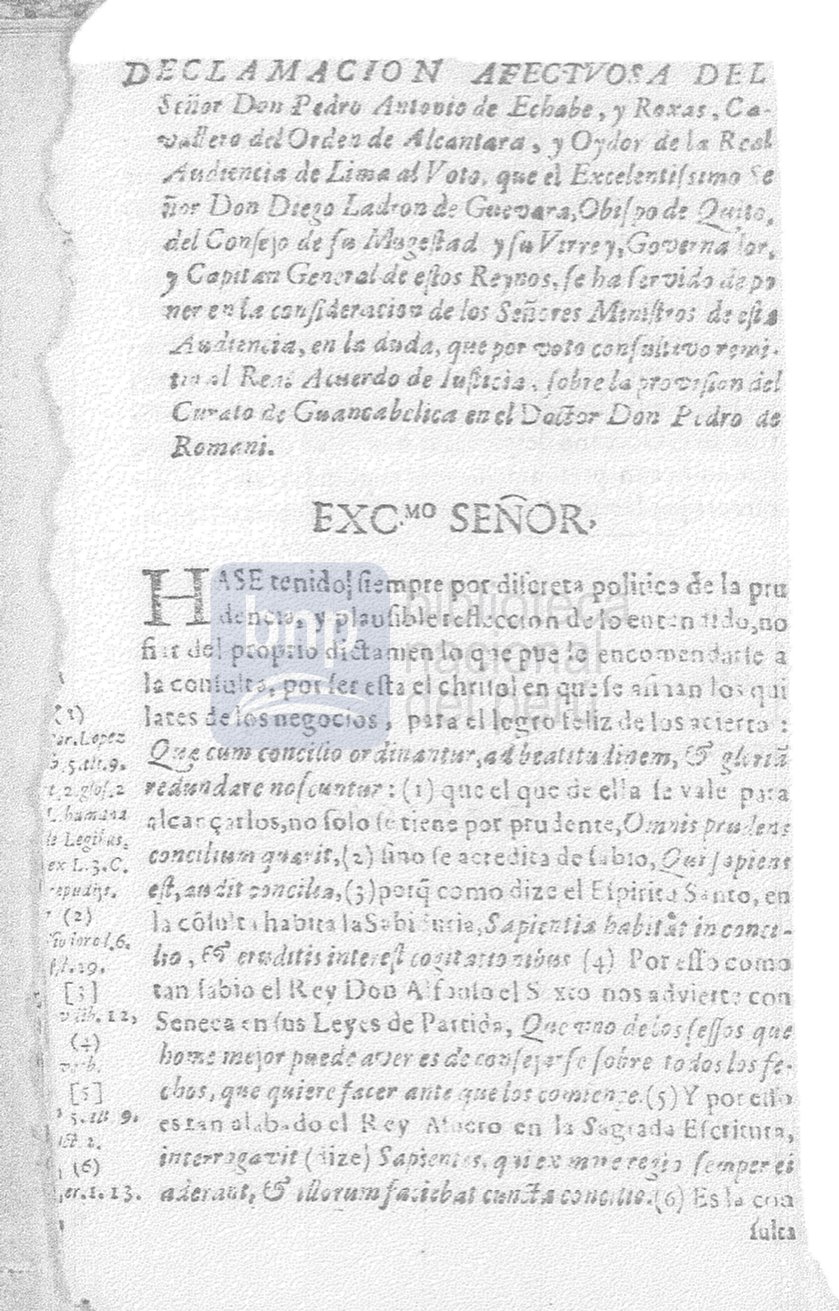 DECLAMACION AFECTVOSA DEL
Señor Don Pedro Antonio de Echabe, y Roxas, Ca-
vallero del Orden de Alcantara, y Oydor de la Real
Audiencia de Lima al Voto, que el Excelentissimo Se
ñor Don Diego Ladron de Guevara, Obispo de Quito,
del Consejo de su Magestad y su Virrey, Governador,
y Capitan General de estos Reynos, se ha servido de po
ner en la consideracion de los Señores Ministros de esta
Audiencia, en la duda, que por voto consultivo remi-
tio al Real Acuerdo de Iusticia, sobre la provision del
Curato de Guancabelica en el Doctor Don Pedro de
Romani.
EXC.MO SEÑOR,
HASE tenido siempre por discreta politica de la pru
dencia, y plausible refleccion de lo entendido, no
fiar del proprio dictamen lo que puede encomendarse a
la consulta, por ser esta el chrisol en que se afinan los qui
lates de los negocios, para el logro feliz de los acierto :
Quæ cum concilio ordinantur, ad beatitudinem, & gloriã
redundare noscuntur : (1) que el que de ella se vale para
alcançarlos, no solo se tiene por prudente, Omnis prudens
concilium quærit, (2) sino se acredita de sabio, Qui sapiens
est, audit concilia, (3) porq̃ como dize el Espiritu Santo, en
la cõsulta habita la Sabiduria, Sapientia habitat in conci-
lio, & eruditis interest cogitationibus (4) Por esso como
tan sabio el Rey Don Alfonso el Sexto nos advierte con
Seneca en sus Leyes de Partida, Que vno de los sessos que
home mejor puede aver es de consejarse sobre todos los fe-
chos, que quiere facer ante que los comienze. (5) Y por esso
es tan alabado el Rey Asuero en la Sagrada Escritura,
interrogavit (dize) Sapientes, qui ex more regio semper ei
aderant, & illorum faciebat cuncta concilio. (6) Es la con
sulta
(1)
ar. Lopez
5. tit. 9.
2. glos. 2
L. humana
de Legibus,
ex L. 3. C.
repudijs.
(2)
6.
19.
[3]
lib. 12,
(4)
verb.
[5]
5. tit 9.
2.
(6)
er. 1. 13.
bnp
biblioteca
nacional
del perú